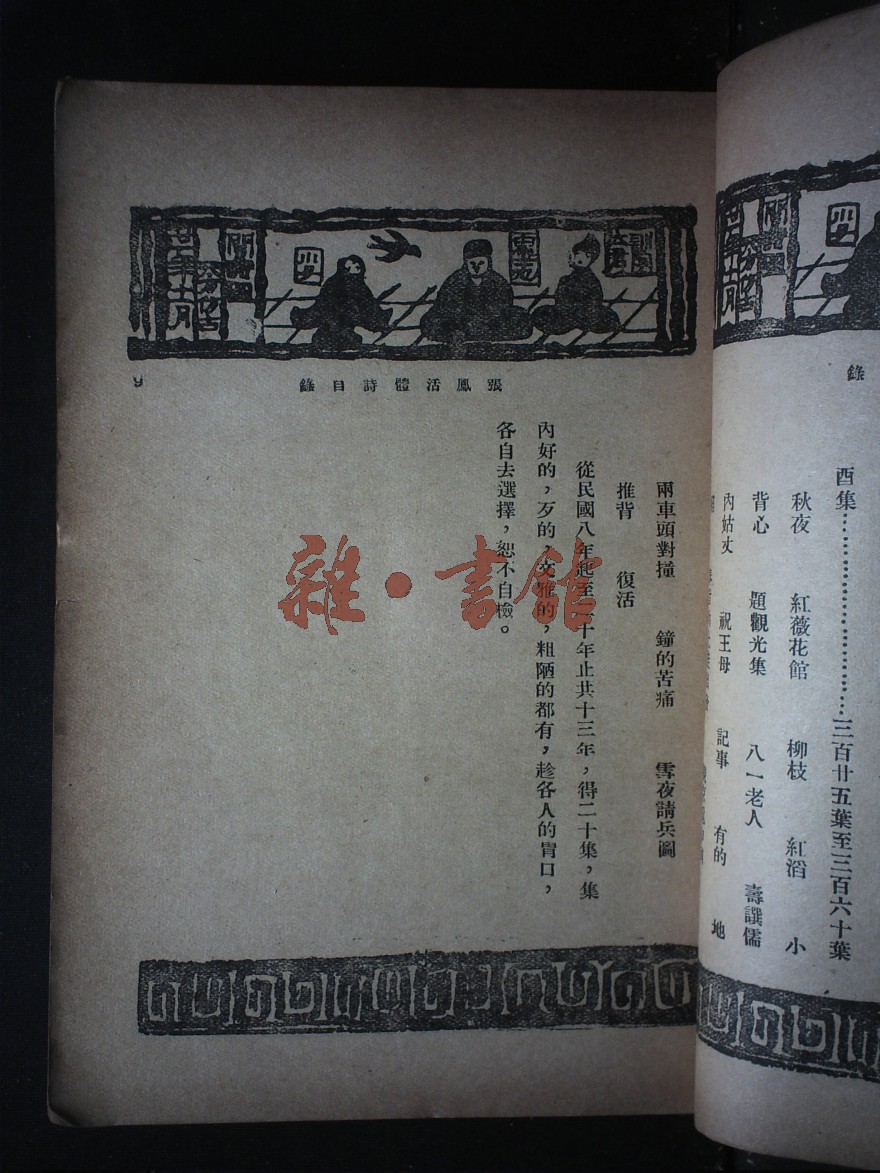 錄
酉集……………………三百廿五葉至三百六十葉
秋夜 紅薇花館 柳枝 紅滔 小
背心 題觀光集 八一老人 壽譔儒
內姑丈 祝王母 記事 有的 地
張鳳活體詩目錄
9
兩車頭對撞 鐘的苦痛 雪夜請兵圖
推背 復活
從民國八年起至二十年止共十三年，得二十集，集
內好的，歹的，文雅的，粗陋的都有，趁各人的胃口，
各自去選擇，恕不自檢。
雜·書館